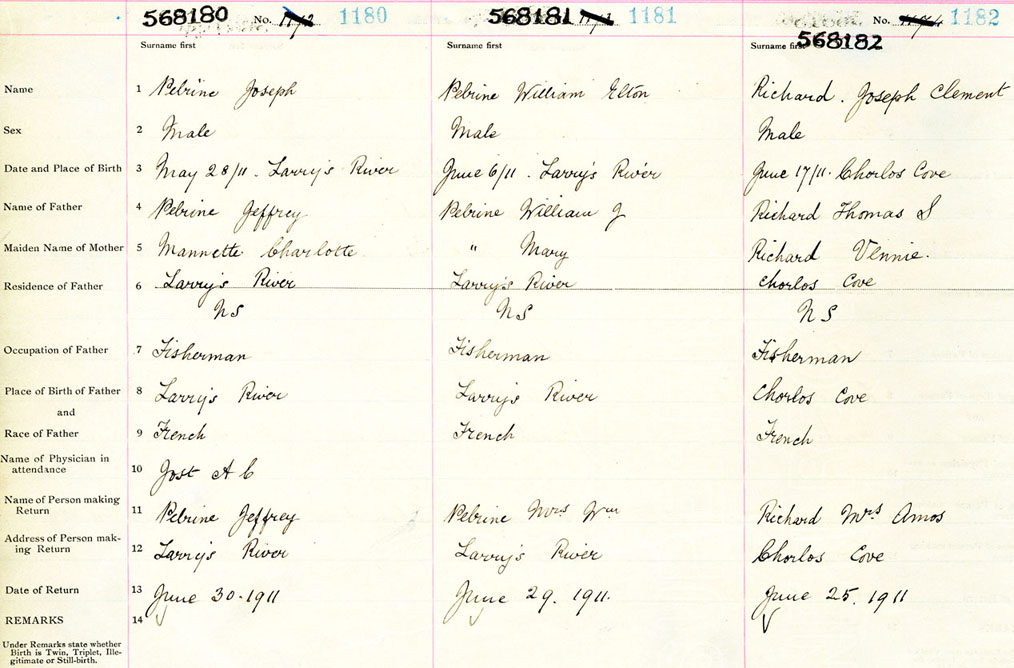 568180 No. 1180 568181 1181 No. 1182
568182
Surname first Surname first Surname first
Name 1 Pelrine Joseph Pelrine William Elton Richard. Joseph Clement
Sex 2 Male Male Male
Date and Place of Birth 3 May 28/11 - Larry's River June 6/11 - Larry's River June 17/11. Chorlos Cove
Name of Father 4 Pelrine Jeffrey Pelrine William J Richard Thomas S
Maiden Name of Mother 5 Mannette Charlotte " Mary Richard Vennie.
Residence of Father 6 Larry's River Larry's River Chorlos Cove
NS NS NS
Occupation of Father 7 Fisherman Fisherman Fisherman
Place of Birth of Father 8 Larry's River Larry's River Chorlos Cove
and
Race of Father 9 French French French
Name of Physician in
attendance 10 Jost A C
Name of Person making
Return 11 Pelrine Jeffrey Pelrine Mrs Wm Richard Mrs Amos
Address of Person mak-
ing Return 12 Larry's River Larry's River Chorlos Cove
Date of Return 13 June 30-1911 June 29. 1911. June 25. 1911
REMARKS 14
Under Remarks state whether
Birth is Twin, Triplet, Ille-
gitimate or Still-birth.